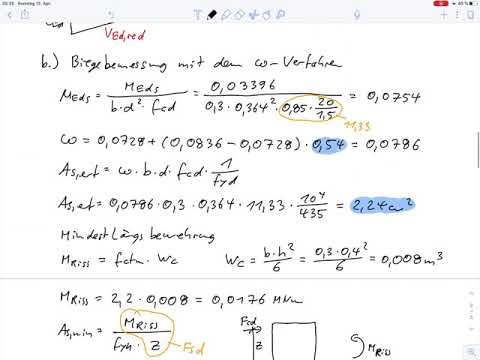 VEd,red
b.) Biegebemessung mit dem ω-Verfahren
MEds = MEds / b·d²·fcd = 0,03396 / 0,3·0,364²·0,85·20/1,5 = 0,0754
11,33
ω = 0,0728 + (0,0836 - 0,0728)·0,54 = 0,0786
As,erf = ω·b·d·fcd·1/fyd
As,erf = 0,0786·0,3·0,364·11,33·10⁴/435 = 2,24cm²
Mindestlängsbewehrung
MRiss = fctm·Wc Wc = b·h²/6 = 0,3·0,4²/6 = 0,008m³
MRiss = 2,2·0,008 = 0,0176 MNm
As,min = MRiss / fyk·z
Fsd
Fcd
z
MRiss